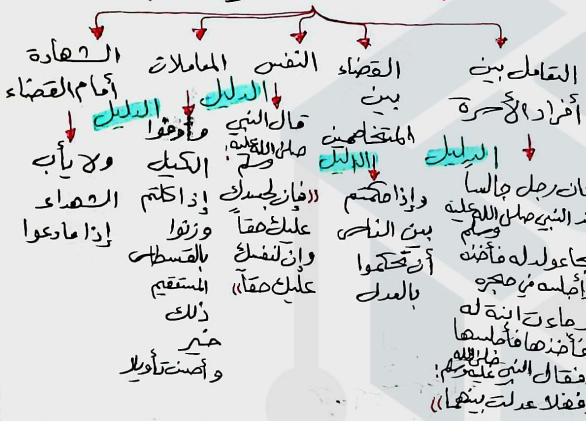 التعامل بين
أفراد الأسرة
الدليل
رجل جالساً
النبي صلى الله عليه
وسلم
ولد له فأخذه
في حجره
ابنة له
فأخذها فأجلسها
فقال النبي صلى الله عليه وسلم:
عدلت بينهما))
القضاء
بين
المتخاصمين
الدليل
وإذا حكمتم
بين الناس
أن تحكموا
بالعدل
النفس
الدليل
قال النبي
صلى الله عليه
وسلم:
((فإن لجسدك
عليك حقاً
وإن لنفسك
عليك حقاً))
المعاملات
الدليل
وأوفوا
الكيل
إذا كلتم
وزنوا
بالقسطاس
المستقيم
ذلك
خير
وأحسن تأويلا
الشهادة
أمام القضاء
ولا يأب
الشهداء
إذا ما دعوا